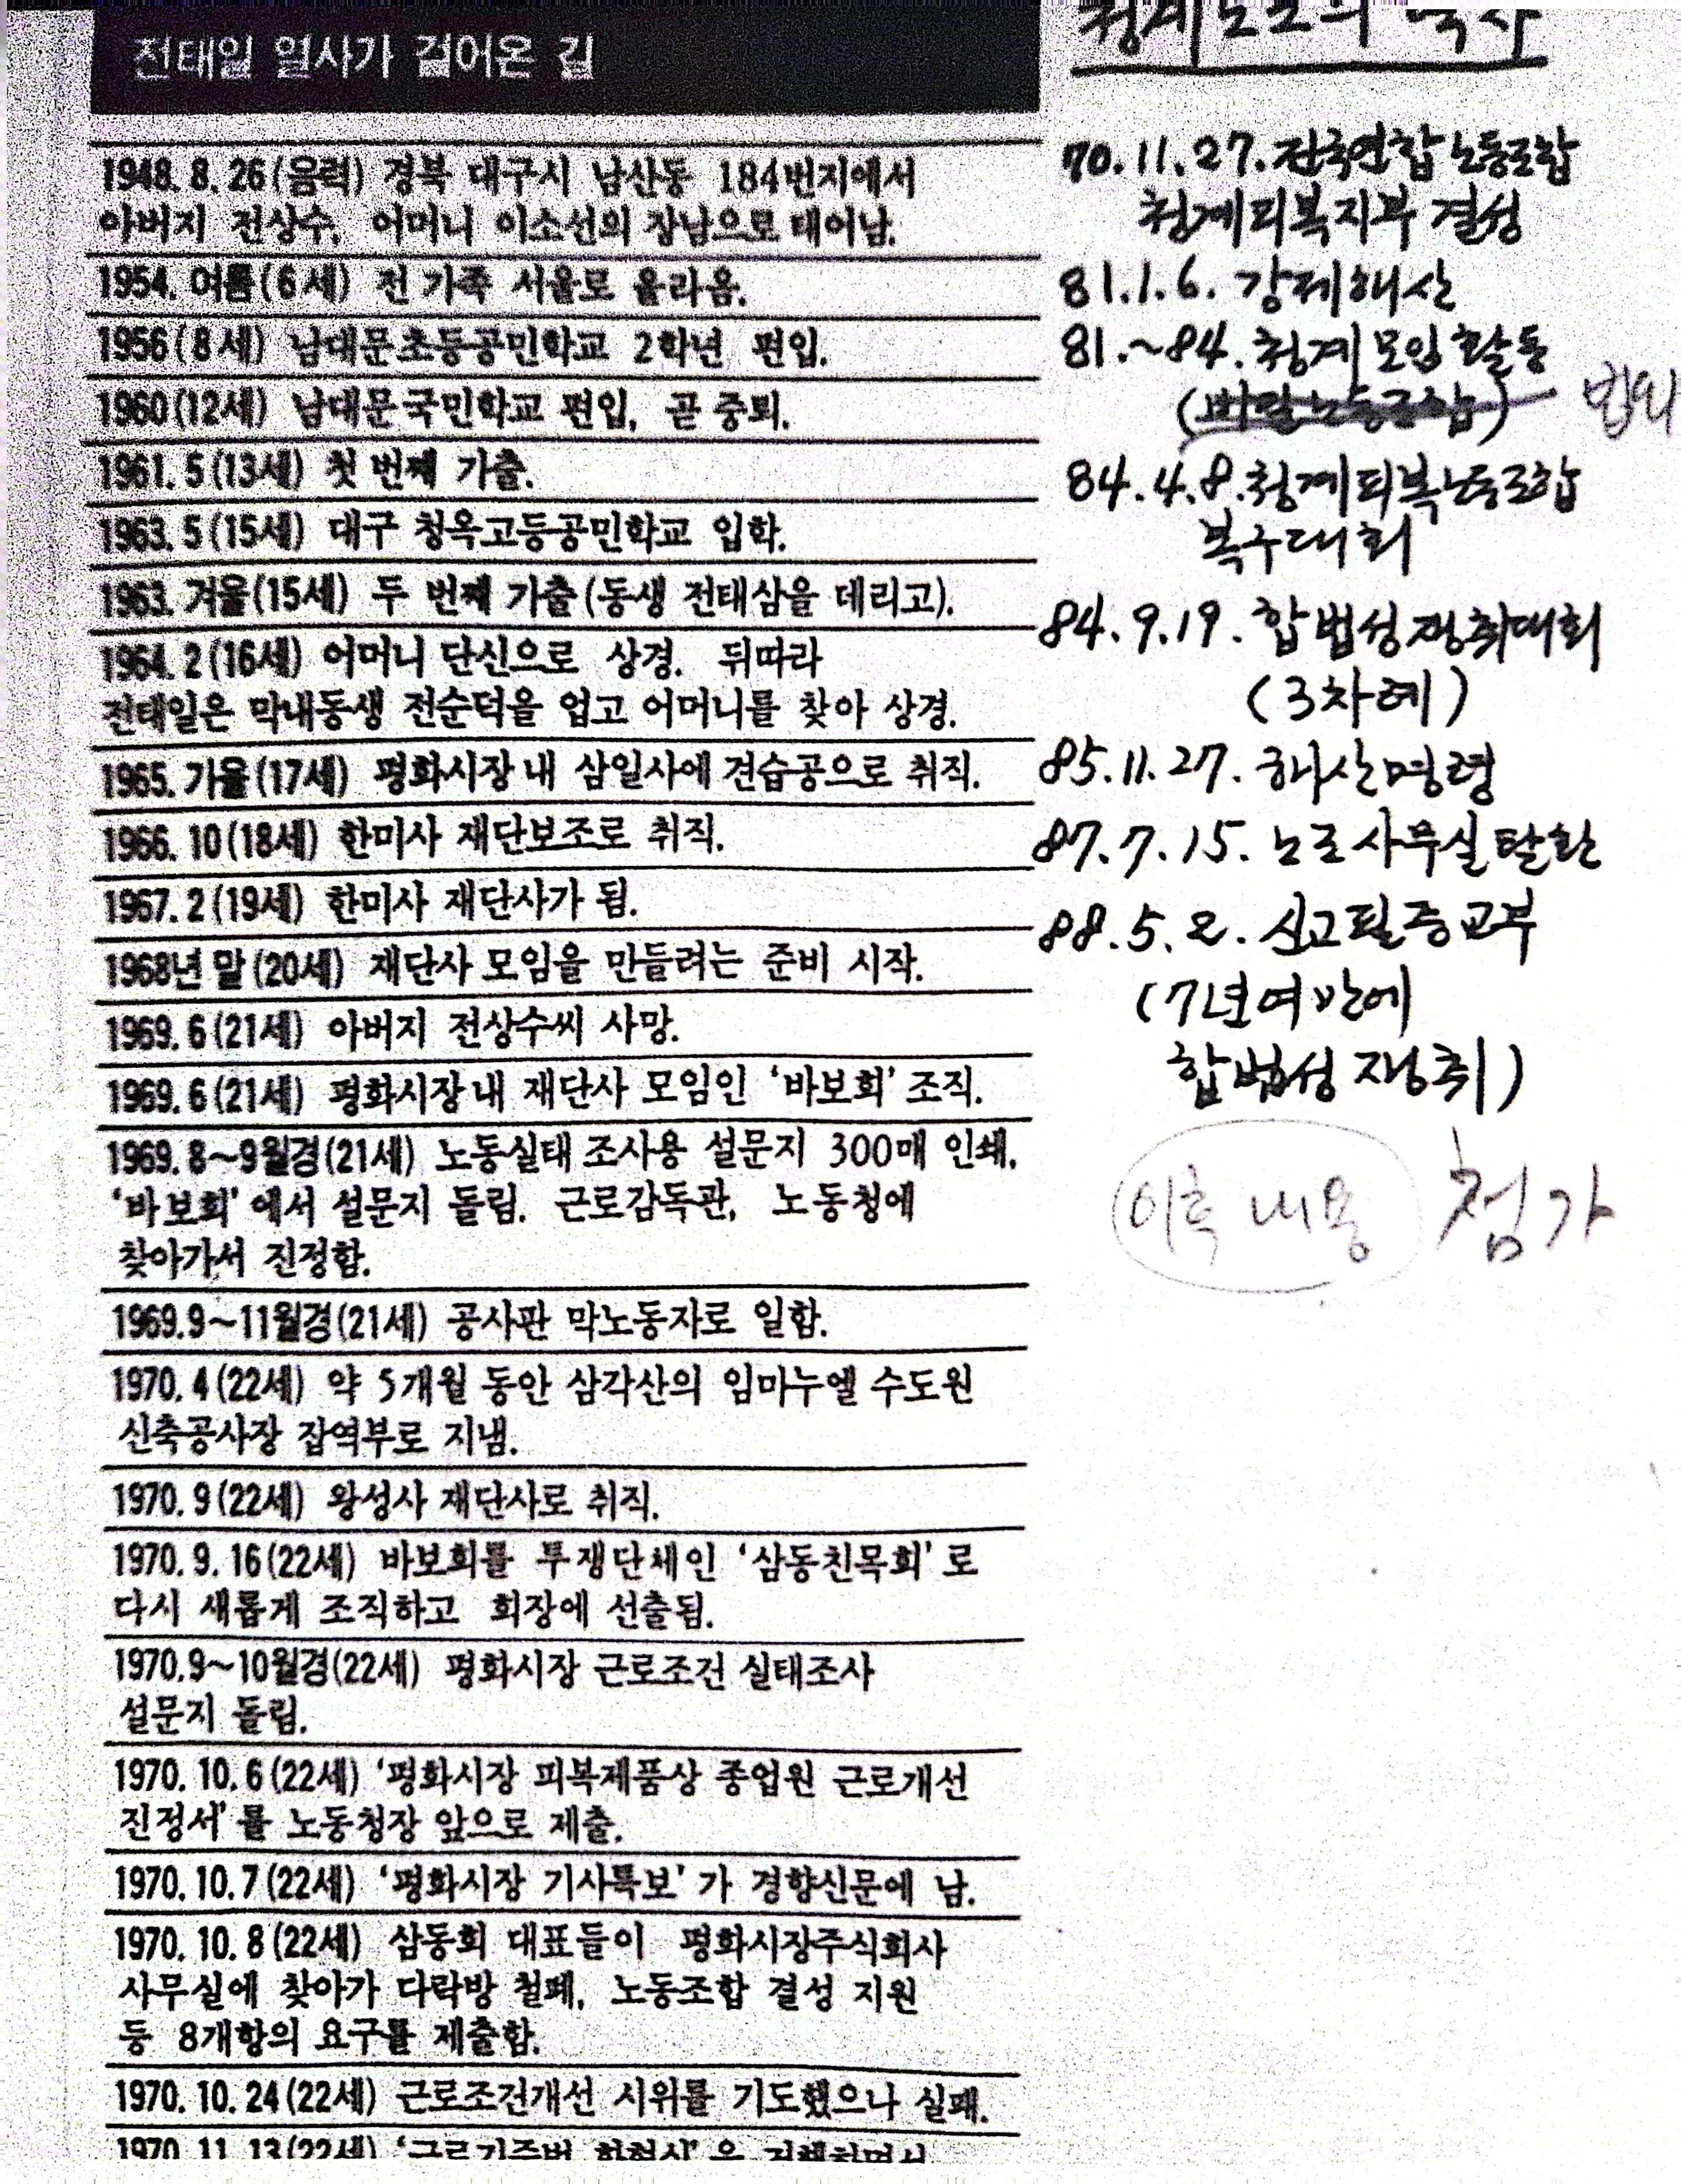 전태일 열사가 걸어온 길
1948. 8. 26(음력) 경북 대구시 남산동 184번지에서
아버지 전상수, 어머니 이소선의 장남으로 태어남.
1954. 여름(6세) 전 가족 서울로 올라옴.
1956(8세) 남대문초등공민학교 2학년 편입.
1960(12세) 남대문국민학교 편입, 곧 중퇴.
1961. 5(13세) 첫 번째 가출.
1963. 5(15세) 대구 청옥고등공민학교 입학.
1963. 겨울(15세) 두 번째 가출(동생 전태삼을 데리고).
1964. 2(16세) 어머니 단신으로 상경. 뒤따라
전태일은 막내동생 전순덕을 업고 어머니를 찾아 상경.
1965. 가을(17세) 평화시장 내 삼일사에 견습공으로 취직.
1966. 10(18세) 한미사 재단보조로 취직.
1967. 2(19세) 한미사 재단사가 됨.
1968년 말(20세) 재단사 모임을 만들려는 준비 시작.
1969. 6(21세) 아버지 전상수씨 사망.
1969. 6(21세) 평화시장내 재단사 모임인 ‘바보회’ 조직.
1969. 8~9월경(21세) 노동실태 조사용 설문지 300매 인쇄,
‘바보회’에서 설문지 돌림. 근로감독관, 노동청에
찾아가서 진정함.
1969.9~11월경(21세) 공사판 막노동자로 일함.
1970. 4(22세) 약 5개월 동안 삼각산의 임마누엘 수도원
신축공사장 잡역부로 지냄.
1970. 9(22세) 왕성사 재단사로 취직.
1970. 9. 16(22세) 바보회를 투쟁단체인 ‘삼동친목회’로
다시 새롭게 조직하고 회장에 선출됨.
1970.9~10월경(22세) 평화시장 근로조건 실태조사
설문지 돌림.
1970. 10. 6(22세) ‘평화시장 피복제품상 종업원 근로개선
진정서’를 노동청장 앞으로 제출.
1970. 10. 7(22세) ‘평화시장 기사특보’가 경향신문에 남.
1970. 10. 8(22세) 삼동회 대표들이 평화시장주식회사
사무실에 찾아가 다락방 철폐, 노동조합 결성 지원
등 8개항의 요구를 제출함.
1970. 10. 24(22세) 근로조건개선 시위를 기도했으나 실패.
1970. 11. 13(22세)
70.11.27. 전국연합노동조합
청계피복지부 결성
81.1.6. 강제해산
81.~84. 청계모임활동
법외
84.4.8. 청계피복노동조합
복구대회
84.9.19. 합법성쟁취대회
(3차례)
85.11.27. 해산명령
87.7.15. 노조사무실탈환
88.5.2. 신고필증교부
(7년여만에
합법성쟁취)
이후 내용 첨가